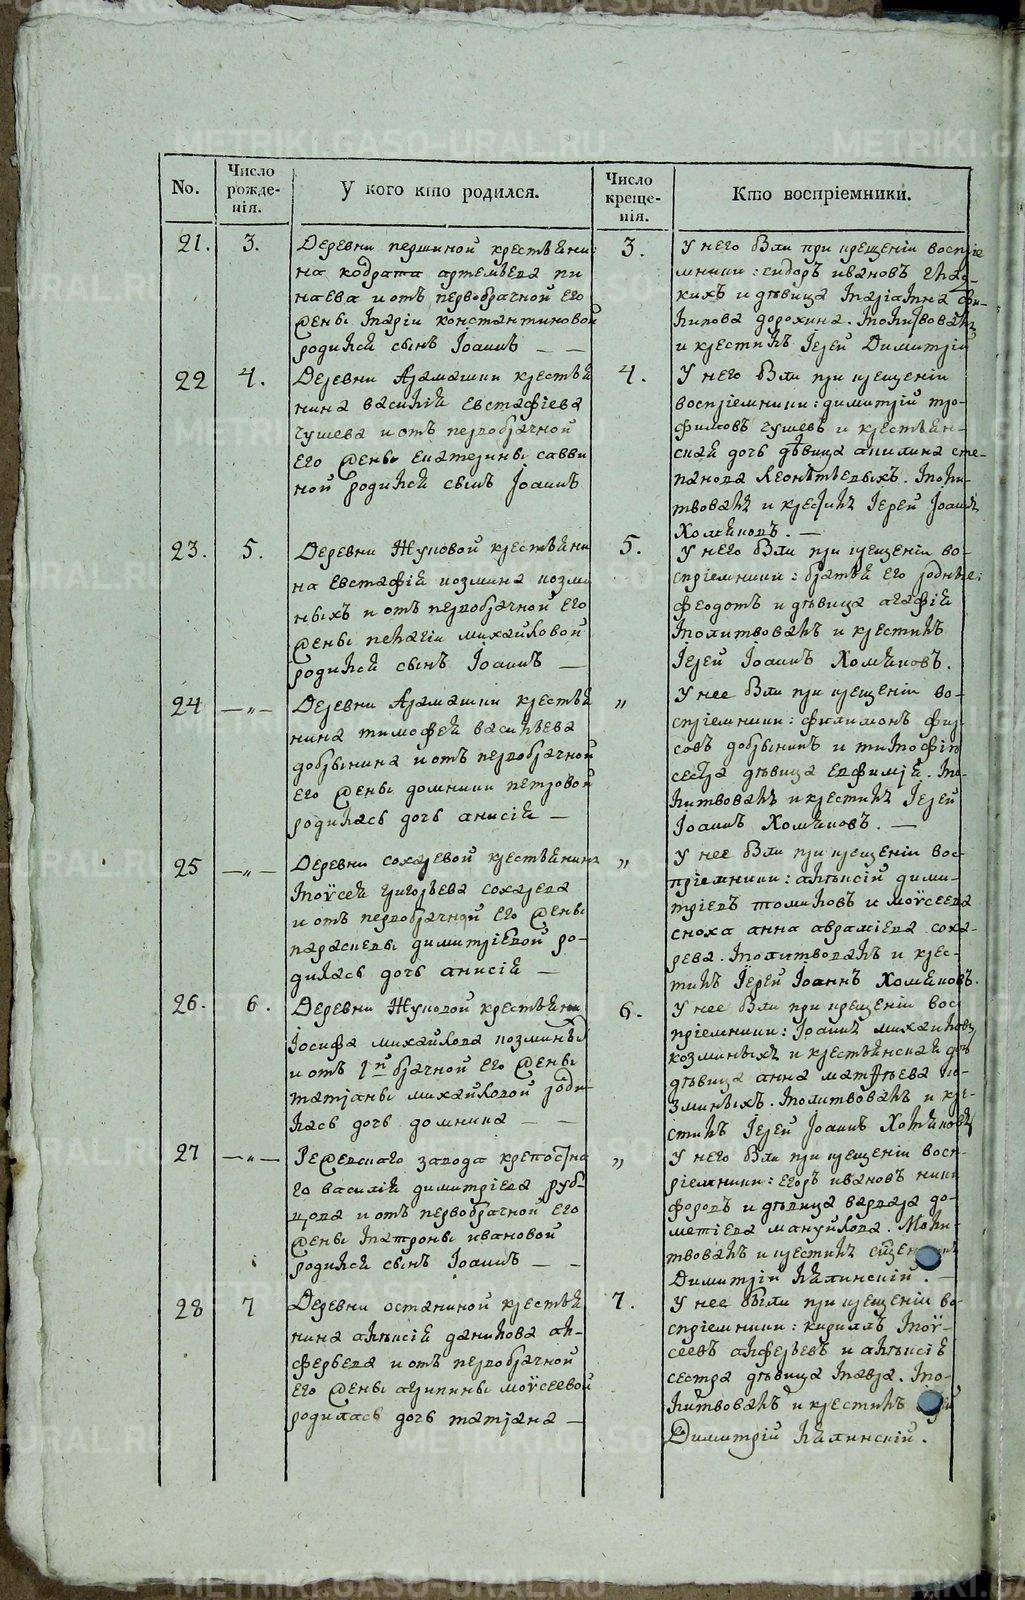 No.
Число рожде-
нія.
У кого кто родился.
Число креще-
нія.
Кто воспріемники.
21. 3.
Деревни першиной крестьяни-
на кодрата артемьева пи
наева и отъ первобрачной его
жены маріи константиновой
родился сынъ Іоаннъ — —
3.
У него были при крещеніи воспріе
мники: сидоръ ивановъ
кихъ и дѣвица маріамна фи-
липова дорохина. молитвовалъ
и крестилъ Іерей Димитрій
22 4.
Деревни Арамашки крестья
нина василія евстафіева
гушева и отъ первобрачной
его жены екатерины савви
ной родился сынъ Іоаннъ
4.
У него были при крещеніи
воспріемники: димитрій тро-
фимовъ гушевъ и крестьян-
ская дочь дѣвица акилина сте-
панова Леонтьевыхъ. моли-
твовалъ и крестилъ Іерей Іоаннъ
Хомяковъ. —
23. 5.
Деревни Жуковой крестьяни
на евстафія козмина козми
ныхъ и отъ первобрачной его
жены пелагіи михайловой
родился сынъ Іоаннъ —
5.
У него были при крещеніи во-
спріемники: братья его родные:
феодотъ и дѣвица агафія
молитвовалъ и крестилъ
Іерей Іоаннъ Хомяковъ.
24 —„—
Деревни Арамашки крестья
нина тимофея васильева
добрынина и отъ первобрачной
его жены домники петровой
родилась дочь анисія —
„
У нее были при крещеніи во-
спріемники: филимонъ фир-
совъ добрынинъ и тимофія
сестра дѣвица евфимія. мо-
литвовалъ и крестилъ Іерей
Іоаннъ Хомяковъ. —
25 —„—
Деревни сохаревой крестьянина
моѵсея григорьева сохарева
и отъ первобрачной его жены
параскевы димитріевой ро-
дилась дочь анисія —
„
У нее были при крещеніи вос-
пріемники: алексій дими-
тріевъ томиловъ и моѵсеева
сноха анна авраміева соха-
рева. молитвовалъ и крес-
тилъ Іерей Іоаннъ Хомяковъ.
26. 6.
Деревни Жуковой крестьянина
Іосифа михайлова козминыхъ
и отъ 1й брачной его жены
татіаны михайловой роди-
лась дочь домника — —
6.
У нее были при крещеніи вос
пріемники: Іоаннъ михайловъ
козминыхъ и крестьянская дочь
дѣвица анна матѳѣева ко-
зминыхъ. молитвовалъ и кре-
стилъ Іерей Іоаннъ Хомяковъ
27 —„—
Режевскаго завода крепостна
го василія димитріева руб-
цова и отъ первобрачной его
жены матроны ивановой
родился сынъ Іоаннъ — —
„
У него были при крещеніи восп-
ріемники: егоръ ивановъ ники
форовъ и дѣвица варвара до-
метіева мануйлова. Моли-
твовалъ и крестилъ
Димитрій Калинскій. —
28 7
Деревни останиной крестья
нина алексія данилова ал-
ферьева и отъ первобрачной
его жены агрипины моѵсеевой
родилась дочь татіана —
7.
У нее были при крещеніи во-
спріемники: кириллъ моѵ-
сеевъ алферьевъ и алексія
сестра дѣвица мавра. мо-
литвовалъ и крестилъ
Димитрій Калинскій.
METRIKI.GASO-URAL.RU